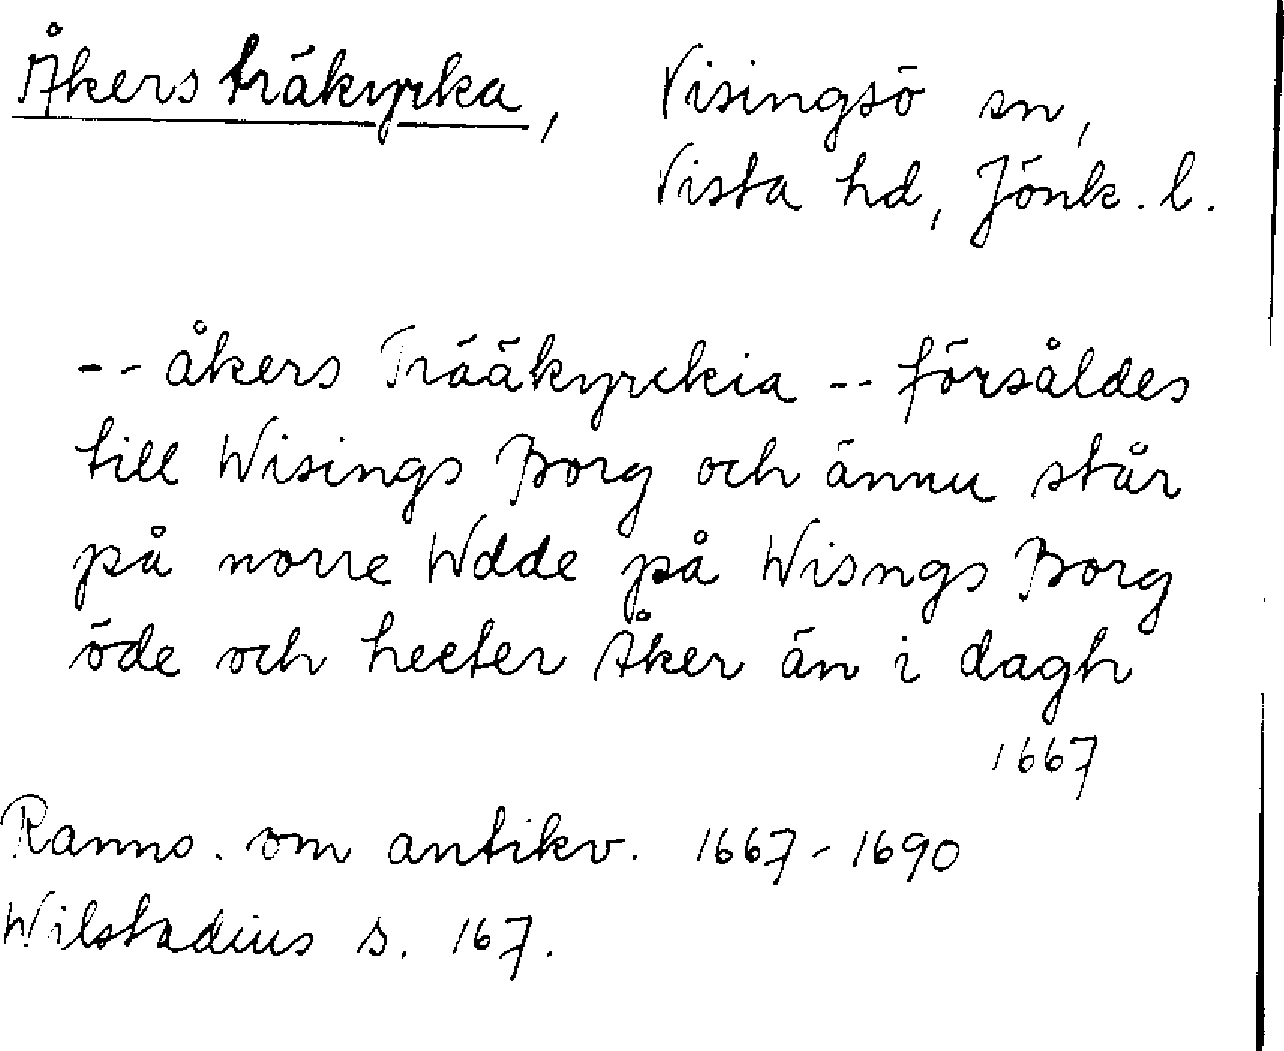 Åkers träkyrka, Visingsö sn,
Vista hd, Jönk. l.
-- åkers Trääkyrckia -- försåldes
till Wisings Borg och ännu står
på norre Wdde på Wisngs Borg
öde och heeter Åker än i dagh
1667
Ranns. om antikv. 1667-1690
Wilstadius s. 167.